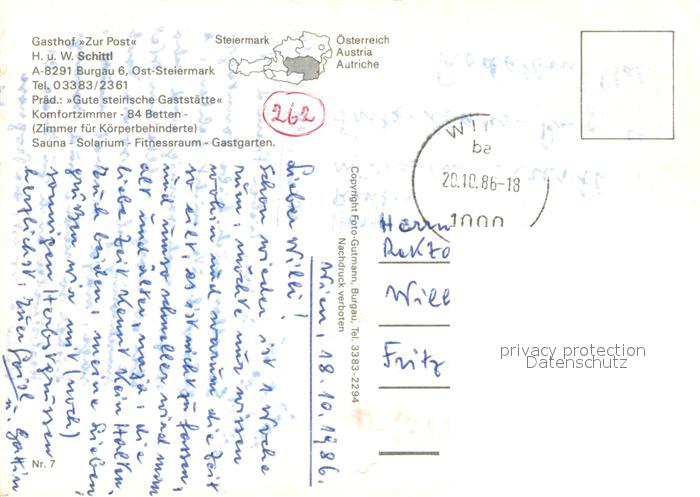 Gasthof »Zur Post«
H. u. W. Schittl
A-8291 Burgau 6, Ost-Steiermark
Tel. 0 33 83/2361
Präd.: »Gute steirische Gaststätte«
Komfortzimmer - 84 Betten -
(Zimmer für Körperbehinderte)
Sauna - Solarium - Fitnessraum - Gastgarten.
Steiermark
Österreich
Austria
Autriche
262
20.10.86-18
1000
Wien, 18.10.1986.
Lieber Willi!
Schon wieder ist 1 Woche
rum, möchte nur wissen
wohin und warum die Zeit
so eilt, es ist nicht zu fassen,
und umso schneller wird man
alt und älter, naja, die
liebe Zeit kennt kein Halten.
Euch beiden, meine Lieben,
grüßen wir mit (noch)
sonnigen Herbstgrüssen
herzlichst, Euer
u. Gattin
Copyright Foto-Gutmann, Burgau, Tel. 3383-2294
Nachdruck verboten
Herrn
Will
Fritz
privacy protection
Datenschutz
Nr. 7